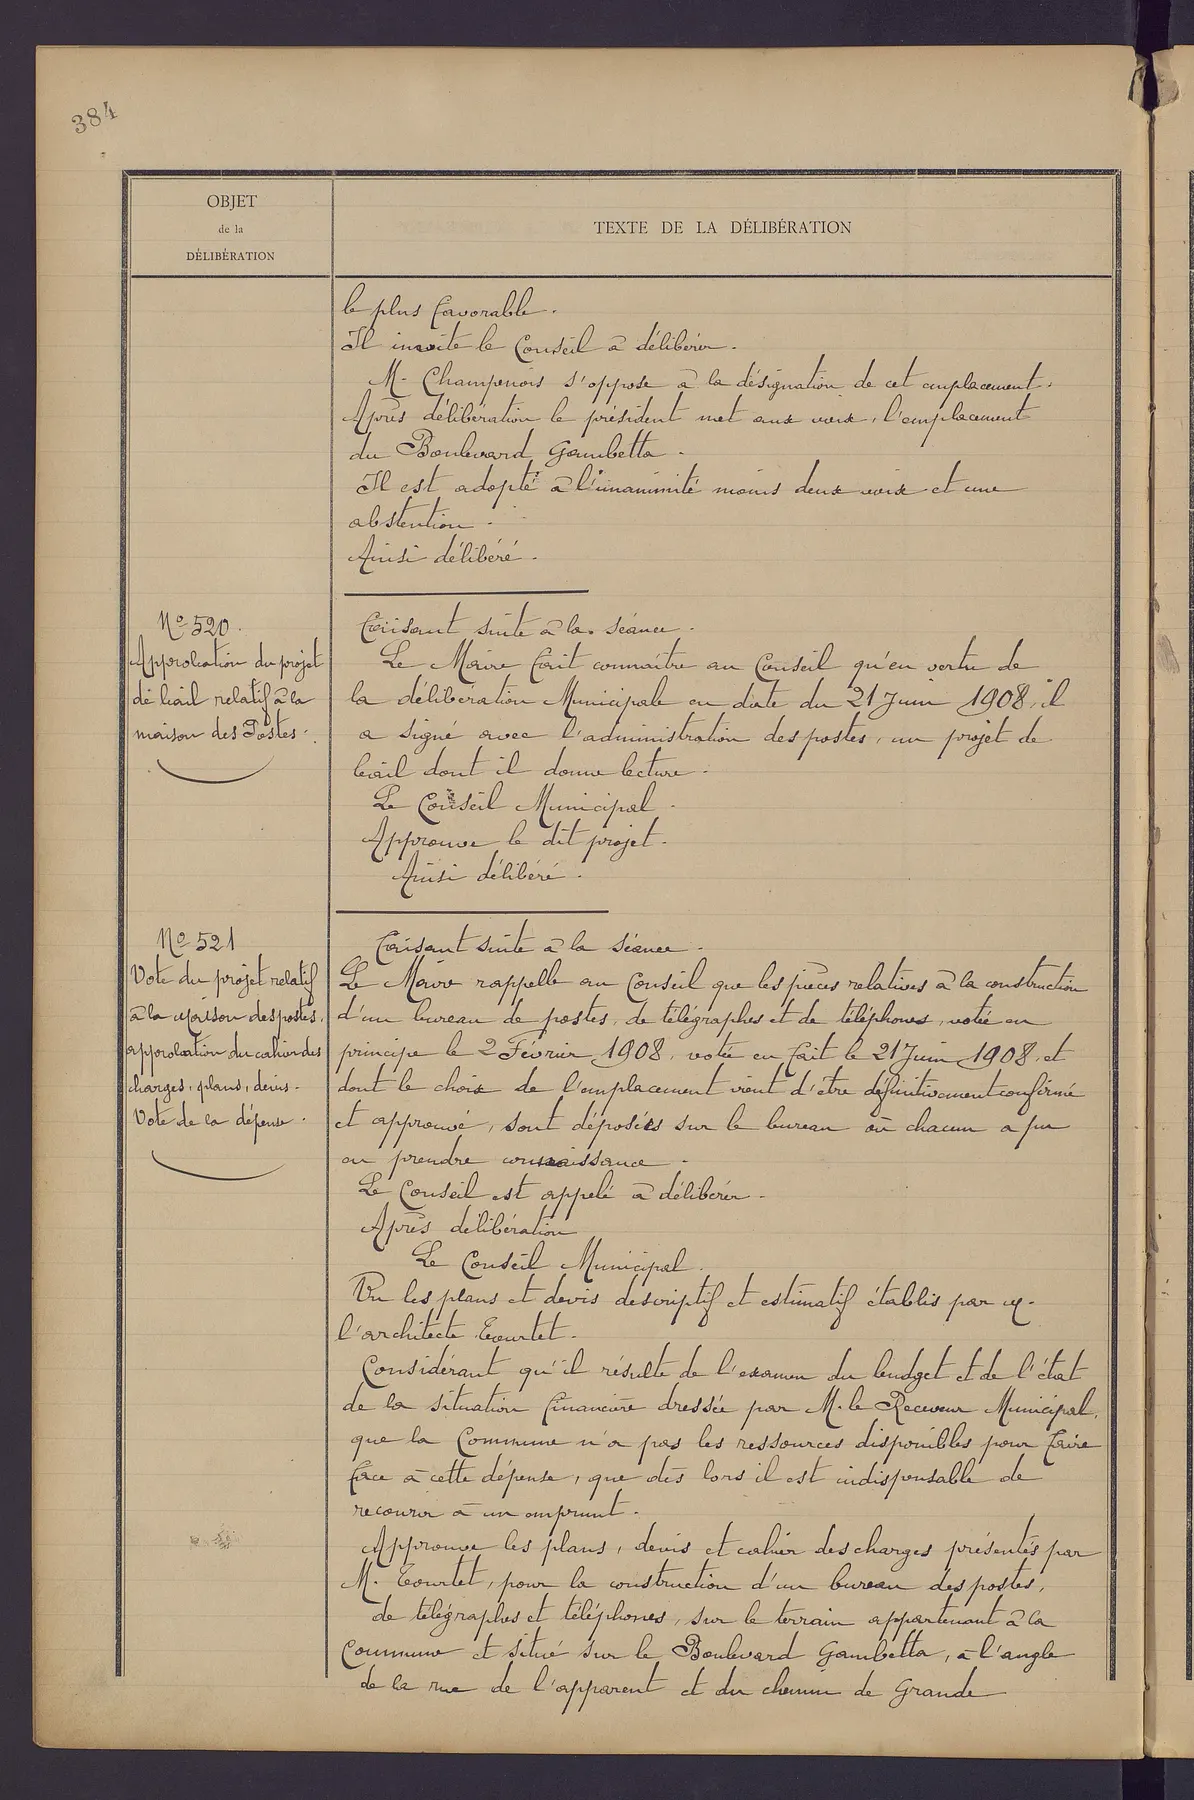 384
OBJET
de la
DÉLIBÉRATION
TEXTE DE LA DÉLIBÉRATION
le plus favorable.
Il invite le Conseil à délibérer.
M. Champenois s'oppose à la désignation de cet emplacement.
Après délibération le président met aux voix, l'emplacement
du Boulevard Gambetta.
Il est adopté à l'unanimité moins deux voix et une
abstention.
Ainsi délibéré.
No 520.
Approbation du projet
de bail relatif à la
maison des Postes.
Faisant suite à la séance.
Le Maire fait connaître au Conseil qu'en vertu de
la délibération Municipale en date du 21 Juin 1908, il
a signé avec l'administration des postes, un projet de
bail dont il donne lecture.
Le Conseil Municipal.
Approuve le dit projet.
Ainsi délibéré.
No 521
Vote du projet relatif
à la Maison des postes.
approbation du cahier des
charges, plans, devis.
Vote de la dépense.
Faisant suite à la séance.
Le Maire rappelle au Conseil que les pièces relatives à la construction
d'un bureau de postes, de télégraphes et de téléphones, votée en
principe le 2 Février 1908, votée en fait le 21 Juin 1908, et
dont le choix de l'emplacement vient d'être définitivement confirmé
et approuvé, sont déposées sur le bureau où chacun a pu
en prendre connaissance.
Le Conseil est appelé à délibérer.
Après délibération
Le Conseil Municipal.
Vu les plans et devis descriptif et estimatif établis par M.
l'architecte Tourtet.
Considérant qu'il résulte de l'examen du budget et de l'état
de la situation financière dressée par M. le Receveur Municipal,
que la Commune n'a pas les ressources disponibles pour faire
face à cette dépense, que dès lors il est indispensable de
recourir à un emprunt.
Approuve les plans, devis et cahier des charges présentés par
M. Tourtet, pour la construction d'un bureau des postes,
de télégraphes et téléphones, sur le terrain appartenant à la
Commune et situé sur le Boulevard Gambetta, à l'angle
de la rue de l'apparent et du chemin de Grande